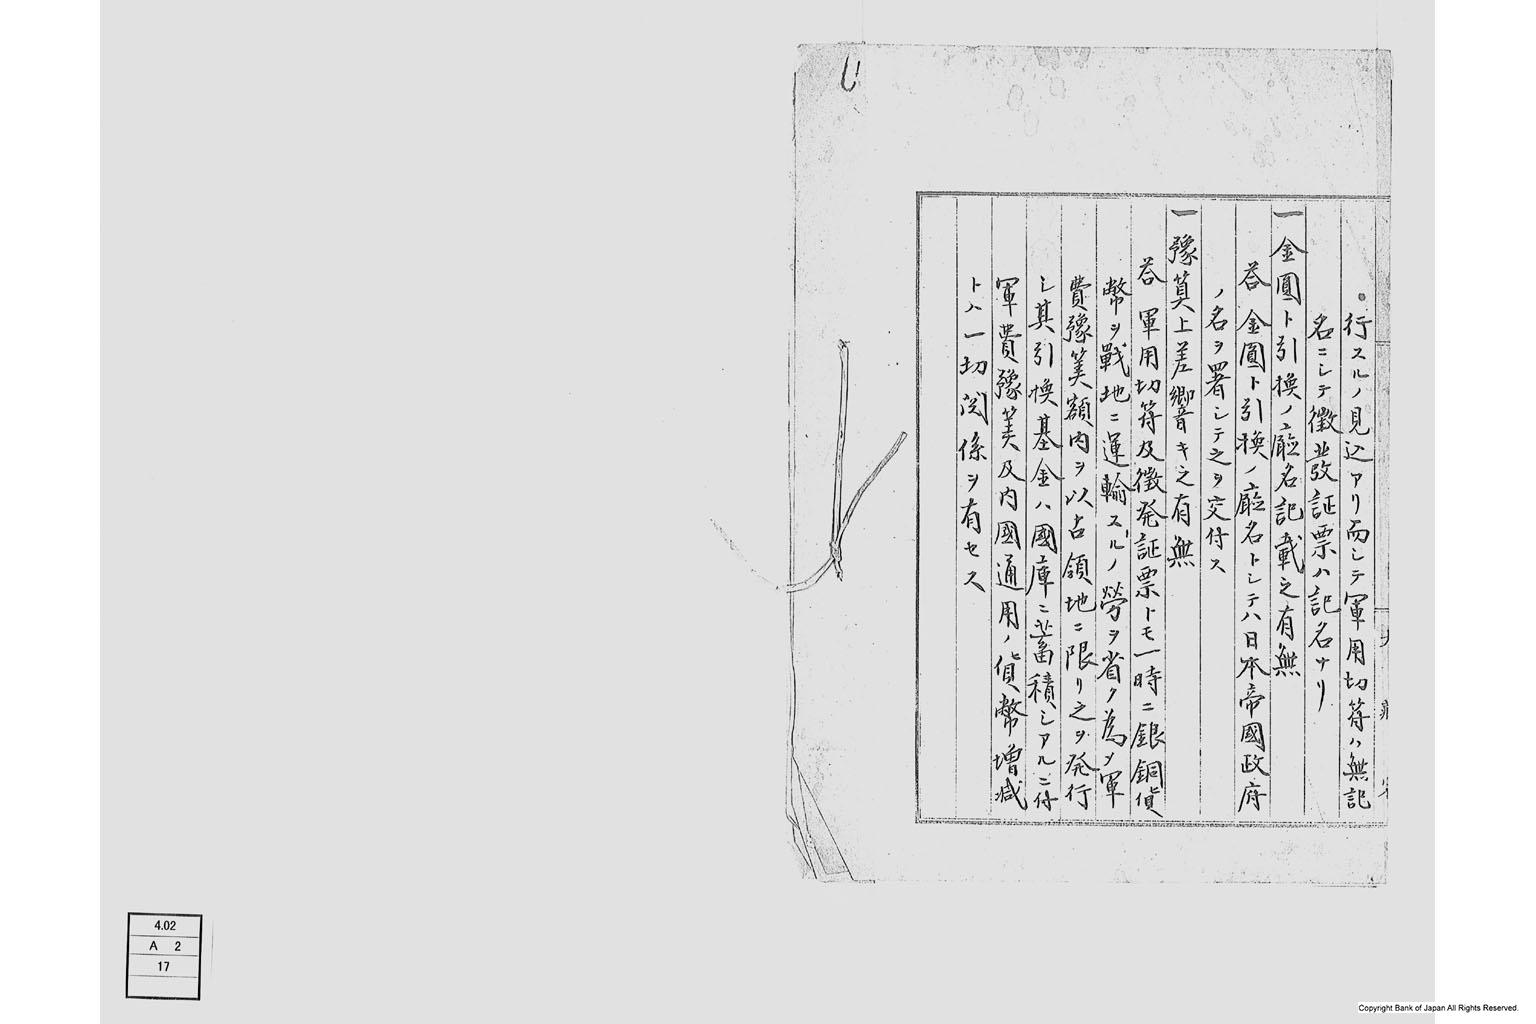 行スルノ見込アリ而シテ軍用切符ハ無記
名ニシテ徴発証票ハ記名ナリ
一金圓ト引換ノ廰名記載之有無
答 金圓ト引換ノ廰名トシテハ日本帝國政府
ノ名ヲ署シテ之ヲ交付ス
一豫算上差響キ之有無
答 軍用切符及徴発証票トモ一時ニ銀銅貨
幣ヲ戰地ニ運輸スルノ勞ヲ省ク為メ軍
費豫算額内ヲ以占領地ニ限リ之ヲ発行
シ其引換基金ハ國庫ニ蓄積シアルニ付
軍費豫算及内國通用ノ貨幣増减
トハ一切関係ヲ有セス
4.02
A 2
17
Copyright Bank of Japan All Rights Reserved.